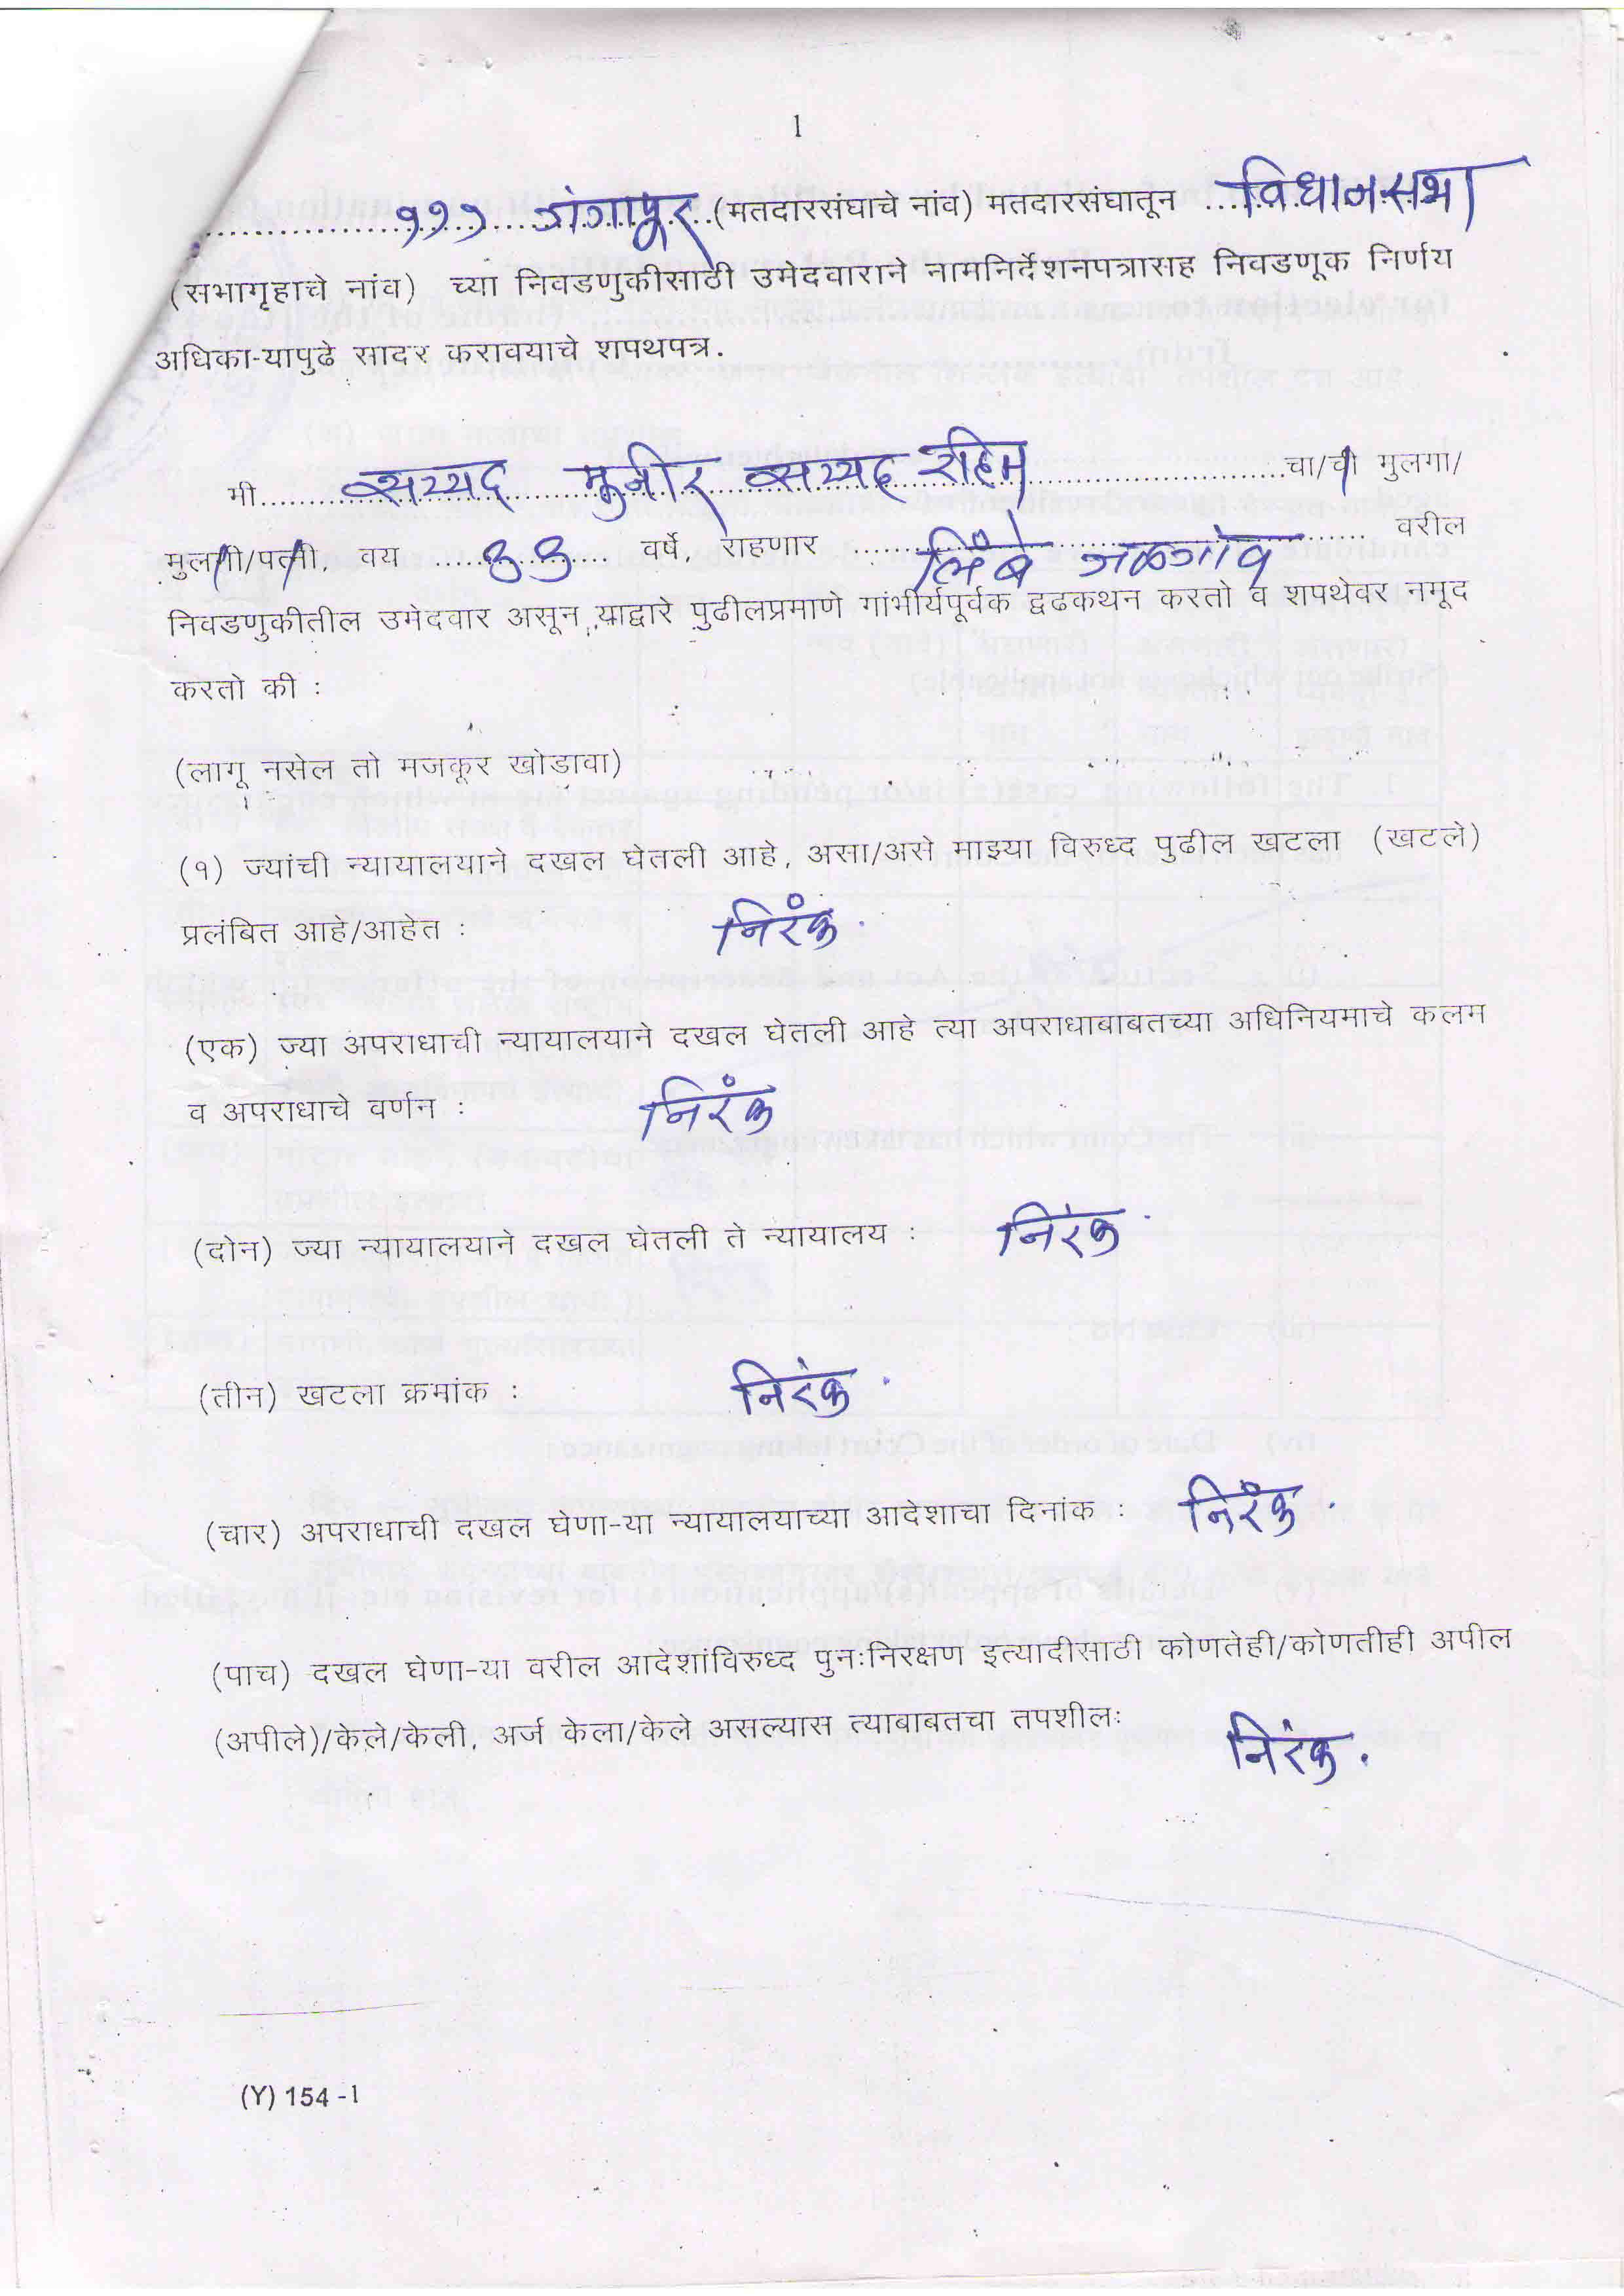 1
१११ गंगापूर (मतदारसंघाचे नांव) मतदारसंघातून विधानसभा
(सभागृहाचे नांव) च्या निवडणुकीसाठी उमेदवाराने नामनिर्देशनपत्रासह निवडणूक निर्णय
अधिका-यापुढे सादर करावयाचे शपथपत्र.
मी सय्यद मुनीर सय्यद रहिम चा/ची मुलगा/
मुलगी/पत्नी, वय ३३ वर्षे, राहणार लिंबे जळगांव वरील
निवडणुकीतील उमेदवार असून याद्वारे पुढीलप्रमाणे गांभीर्यपूर्वक द्वढकथन करतो व शपथेवर नमूद
करतो की :
(लागू नसेल तो मजकूर खोडावा)
(१) ज्यांची न्यायालयाने दखल घेतली आहे, असा/असे माझ्या विरुध्द पुढील खटला (खटले)
प्रलंबित आहे/आहेत : निरंक.
(एक) ज्या अपराधाची न्यायालयाने दखल घेतली आहे त्या अपराधाबाबतच्या अधिनियमाचे कलम
व अपराधाचे वर्णन : निरंक
(दोन) ज्या न्यायालयाने दखल घेतली ते न्यायालय : निरंक.
(तीन) खटला क्रमांक : निरंक.
(चार) अपराधाची दखल घेणा-या न्यायालयाच्या आदेशाचा दिनांक : निरंक.
(पाच) दखल घेणा-या वरील आदेशांविरुध्द पुनःनिरक्षण इत्यादीसाठी कोणतेही/कोणतीही अपील
(अपीले)/केले/केली, अर्ज केला/केले असल्यास त्याबाबतचा तपशीलः निरंक.
(Y) 154 -1